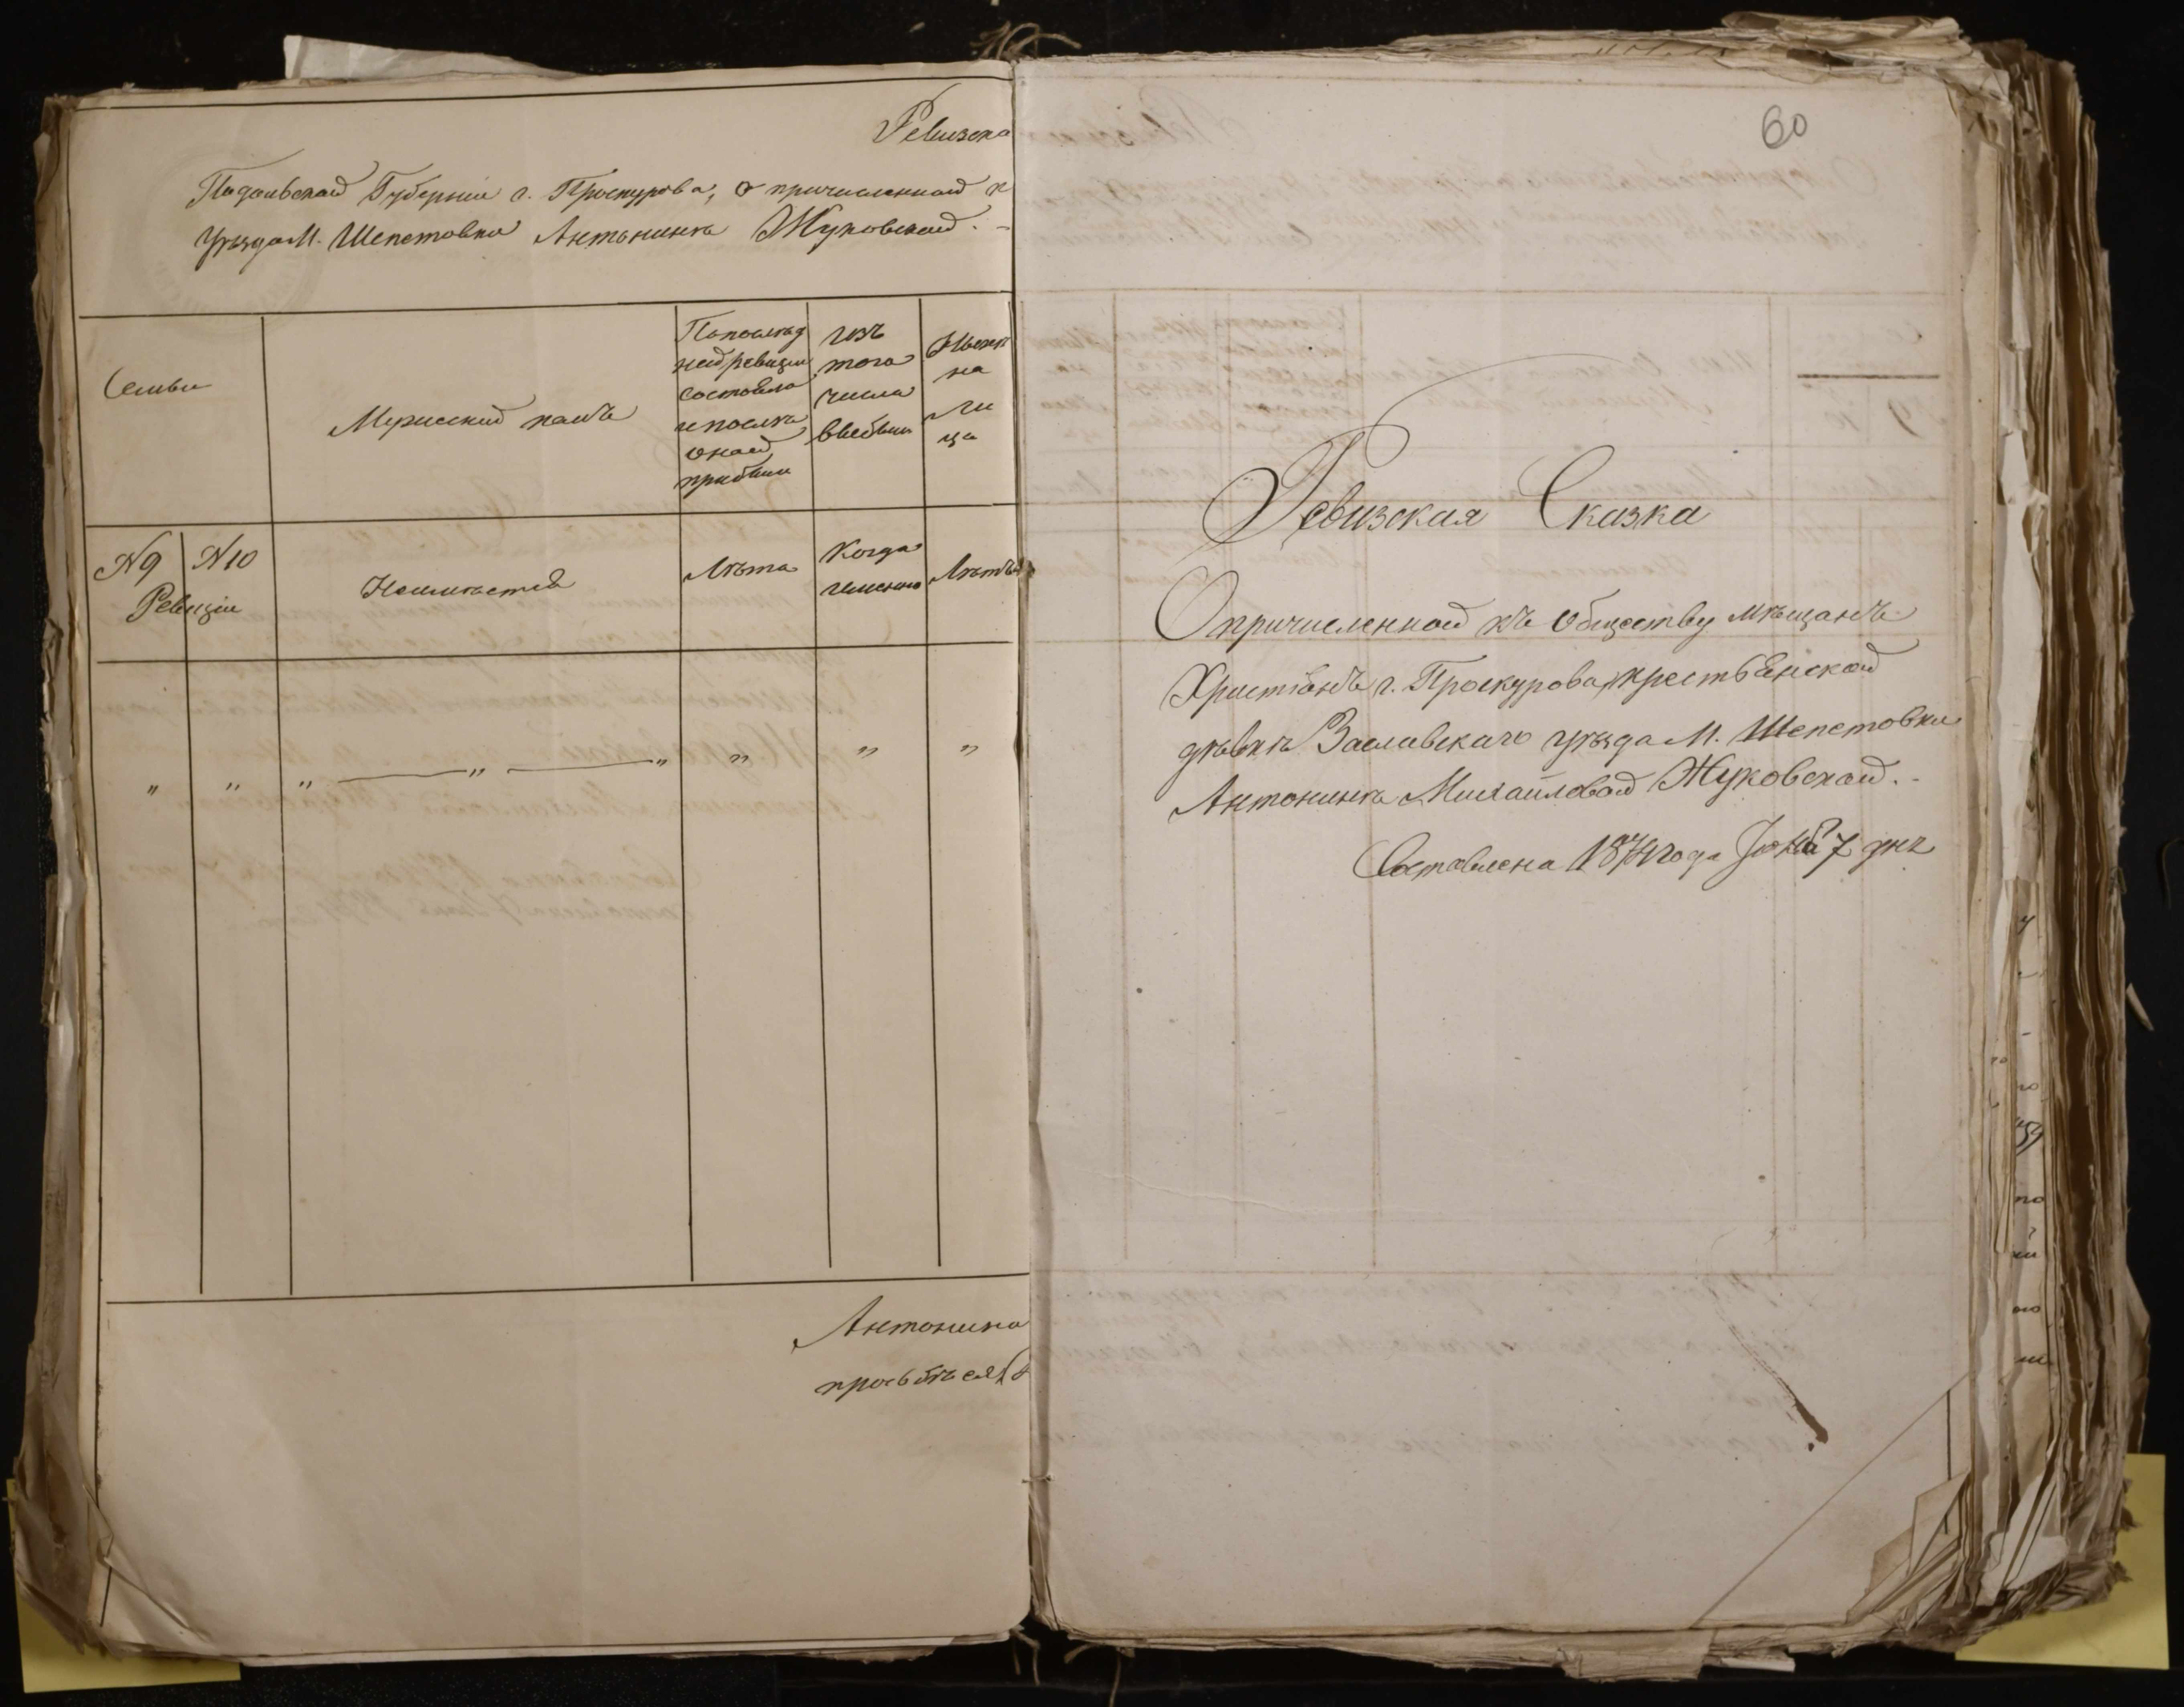 Ревизска
Подольской Губерніи г. Проскурова, о причисленной к
уѣзда М. Шепетовки Антонинѣ Жуковской.
Семьи
Мужескій полъ
По послѣд
ней ревизіи
состояло
и послѣ
оной
прибыли
Изъ
того
числа
выбыли
Нынѣ
на
ли
цо
N 9
N 10
Ревизіи
Лѣта
Когда
именно
Лѣта
" " " — " — " " " "
Антонина
60
Ревизская Сказка
О причисленной къ обществу мѣщанъ
Христіанъ г. Проскурова, крестьянской
дѣвкѣ Заславскаго уѣзда М. Шепетовки
Антонинѣ Михайловой Жуковской.
Составлена 1874 года 7 дня